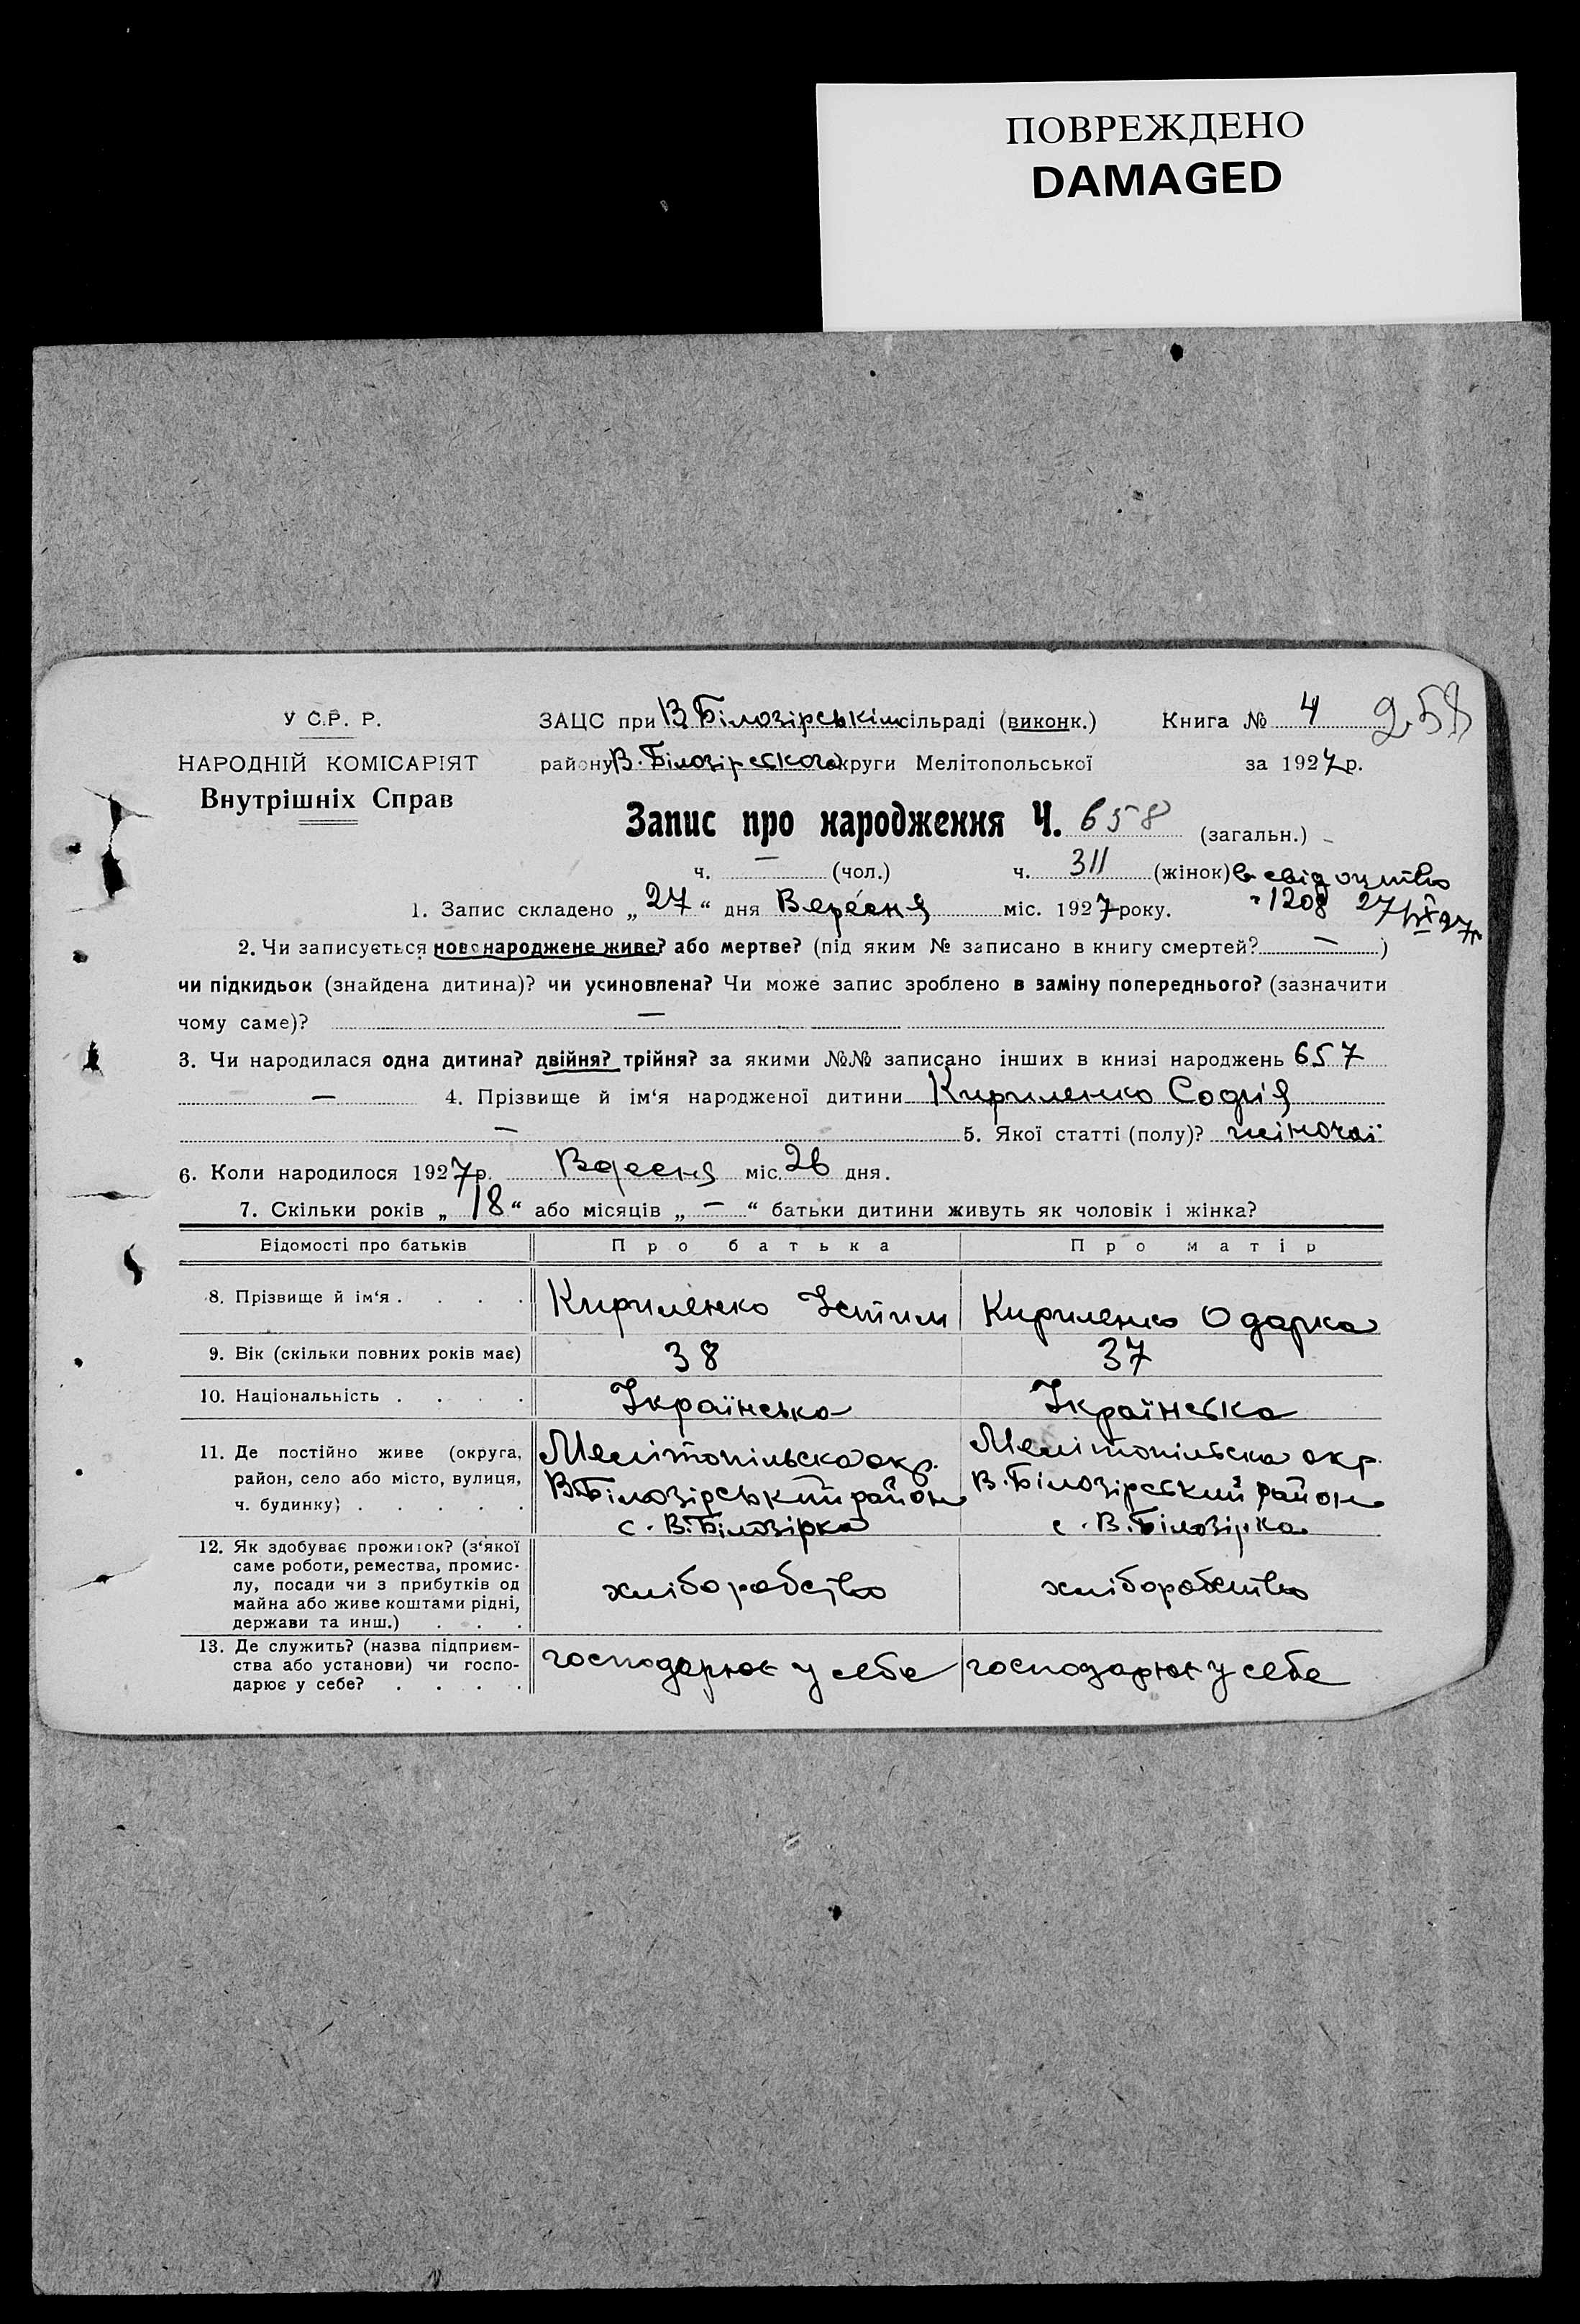 ПОВРЕЖДЕНО
DAMAGED
У С.Р. Р.
НАРОДНІЙ КОМІСАРІЯТ
Внутрішніх Справ
ЗАЦС при В Білозірськім сільраді (виконк.) Книга № 4 258
району В. Білозірського округи Мелітопольської за 1927 р.
Запис про народження Ч. 658 (загальн.)
ч. — (чол.) ч. 311 (жінок)
свідоцтво
1208 27/IX 27р
1. Запис складено „27“ дня Вересня міс. 1927 року.
2. Чи записується новонароджене живе? або мертве? (під яким № записано в книгу смертей? — )
чи підкидьок (знайдена дитина)? чи усиновлена? Чи може запис зроблено в заміну попереднього? (зазначити
чому саме)? —
3. Чи народилася одна дитина? двійня? трійня? за якими №№ записано інших в книзі народжень 657
— 4. Прізвище й ім‘я народженої дитини Кириленко Софія
— 5. Якої статті (полу)? жіночої
6. Коли народилося 1927 р. Вересня міс. 26 дня.
7. Скільки років „18“ або місяців „—“ батьки дитини живуть як чоловік і жінка?
Відомості про батьків Про батька Про матір
8. Прізвище й ім‘я . . . . Кириленко Устим Кириленко Одарка
9. Вік (скільки повних років має) 38 37
10. Національність . . . . Українська Українська
11. Де постійно живе (округа, Мелітопільска окр. Мелітопільска окр.
район, село або місто, вулиця, В.Білозірський район В.Білозірський район
ч. будинку) . . . . . с. В.Білозірка с. В.Білозірка
12. Як здобуває прожиток? (з‘якої
саме роботи, ремества, промис-
лу, посади чи з прибутків од хліборобство хліборобство
майна або живе коштами рідні,
держави та инш.) . . .
13. Де служить? (назва підприєм-
ства або установи) чи госпо- господарює у себе господарює у себе
дарює у себе? . . . .